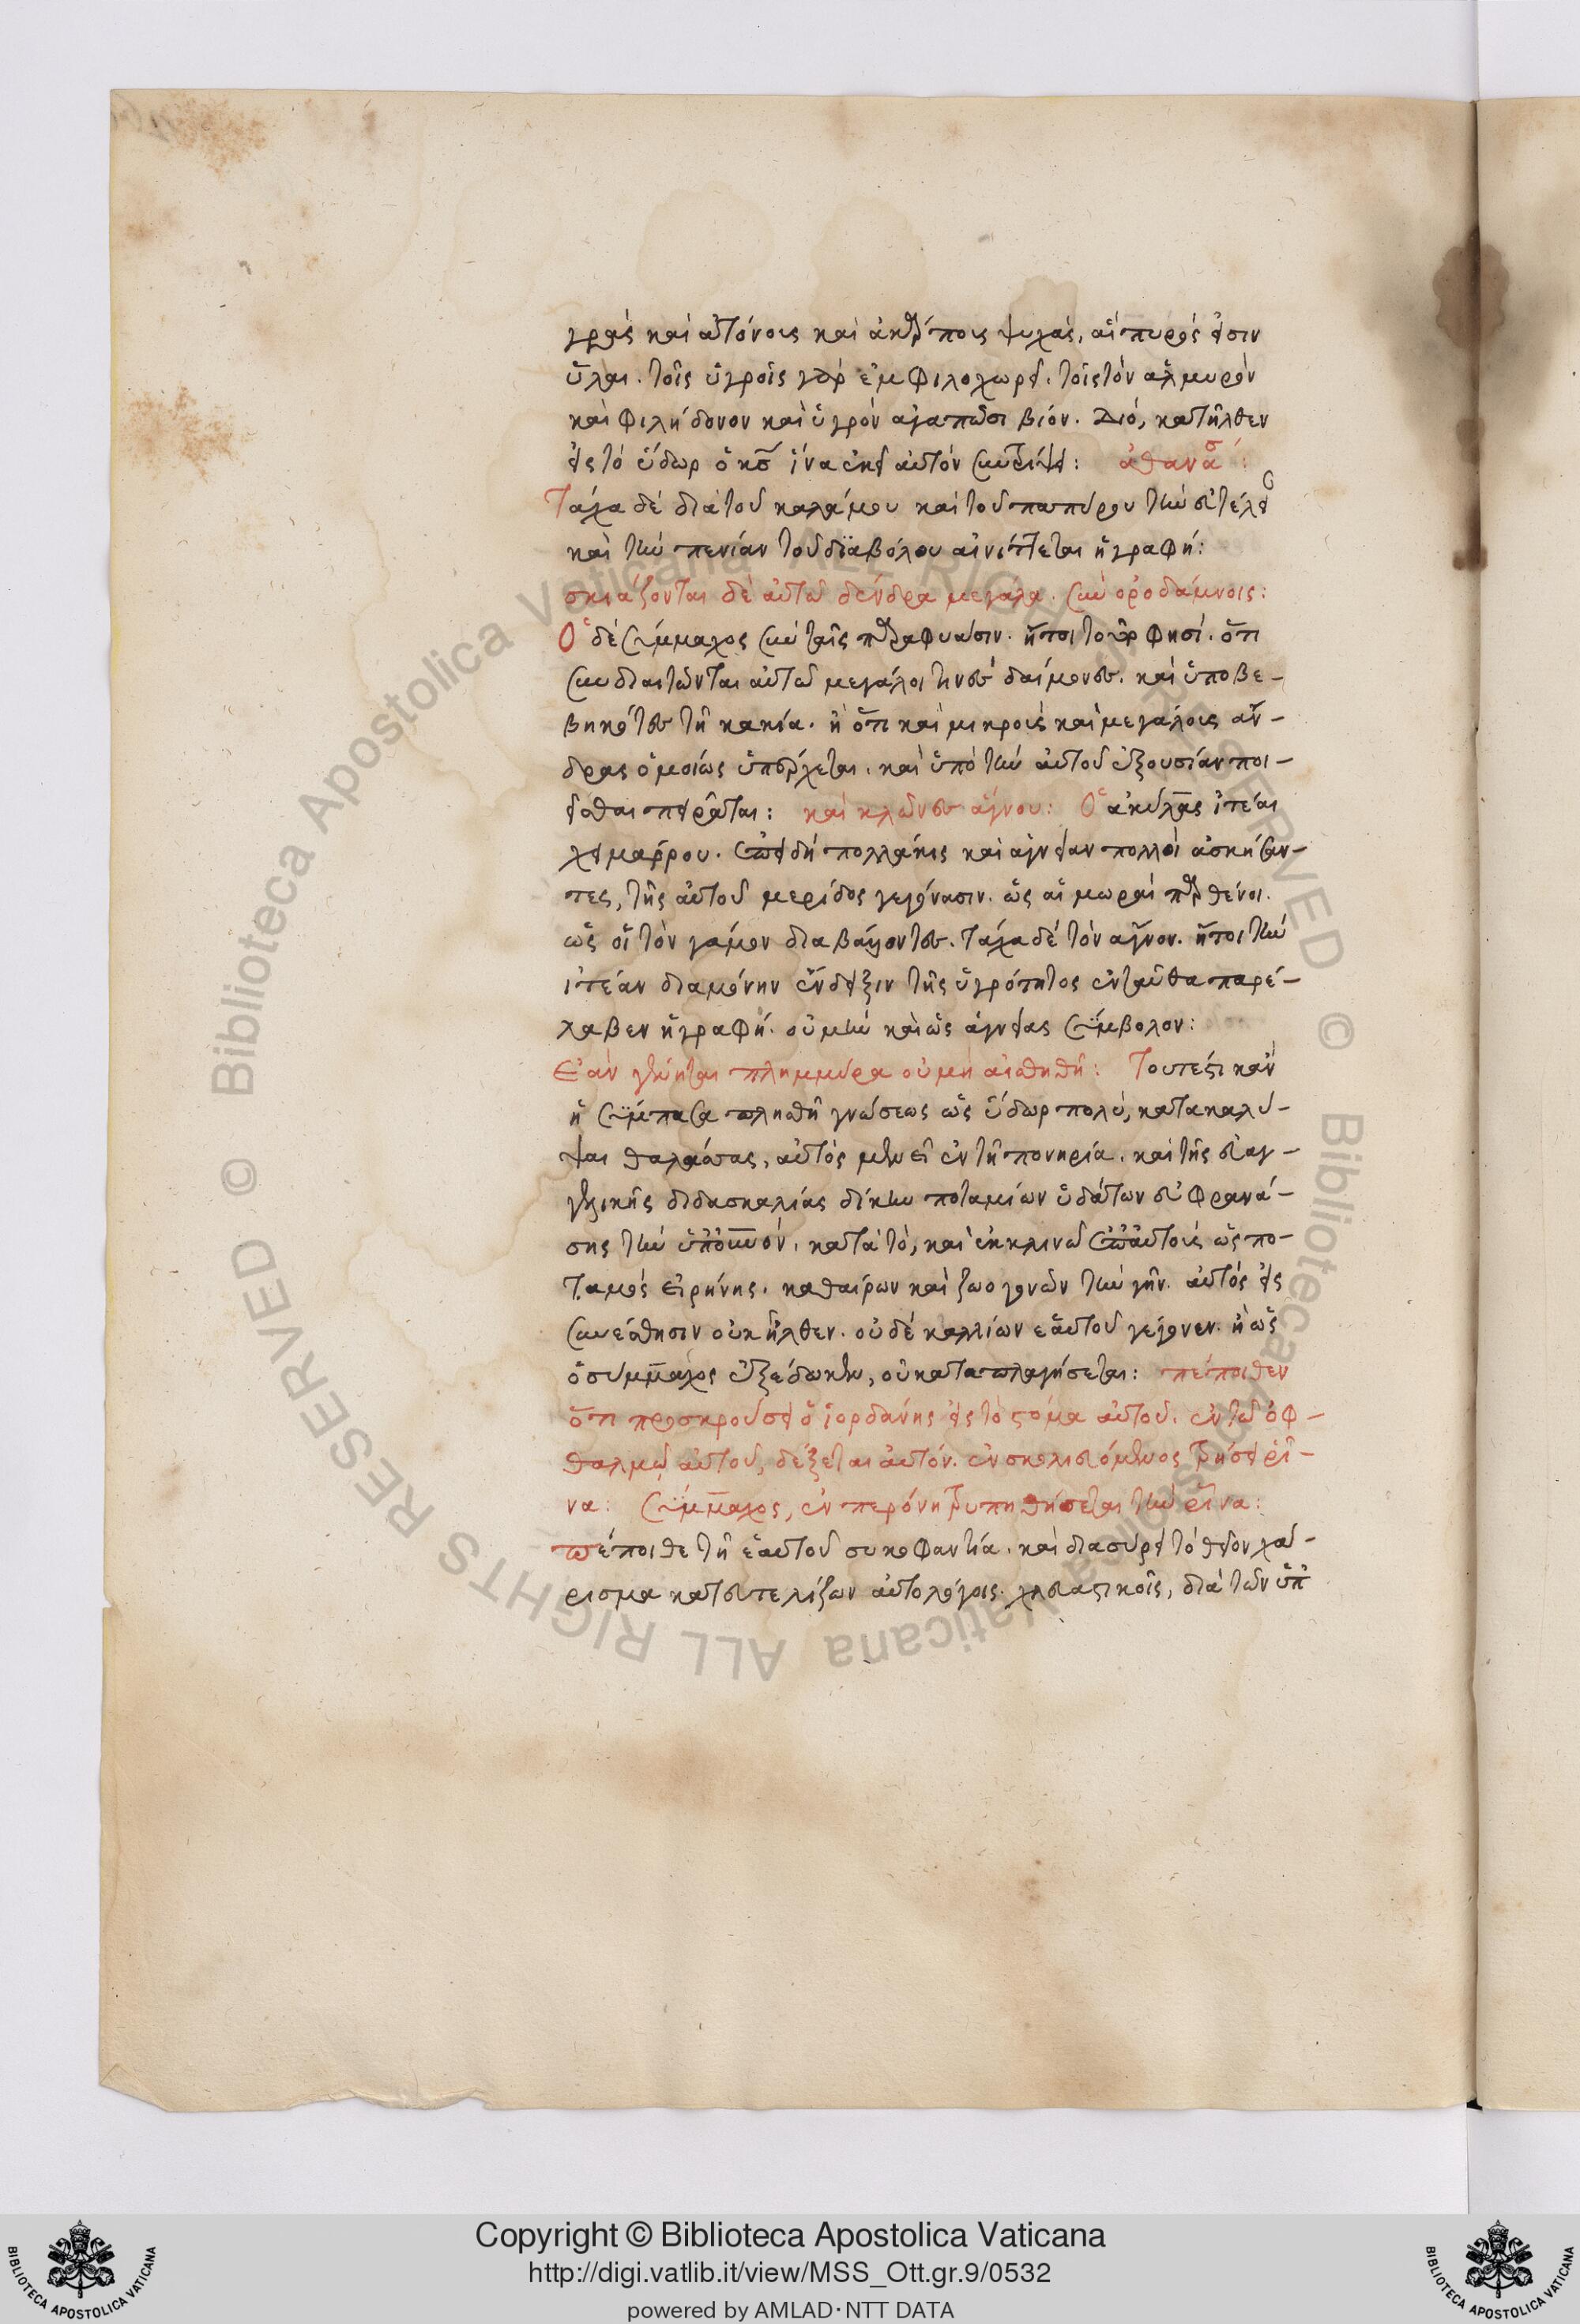 γρὰς καὶ ἀτόνους καὶ ἀκάρπους ψυχὰς, αἳ πυρός εἰσιν
ὗλαι. τοῖς ὑγροῖς γὰρ ἐμφιλοχωρεῖ. τοῖς τὸν ἁλμυρὸν
καὶ φιλήδονον καὶ ὑγρὸν ἀγαπῶσι βίον. Διὸ, κατῆλθεν
εἰς τὸ ὕδωρ ὁ κς ἵνα ἐκεῖ αὐτὸν συντρίψει: ἀθανασ:
Τάχα δὲ διὰ τοῦ καλάμου καὶ τοῦ παπύρου τὴν εὐτέλει
καὶ τὴν πενίαν τοῦ διαβόλου αἰνίττεται ἡ γραφή:
σκιάζονται δὲ αὐτῶ δένδρα μεγάλα. σὺν ὀροδάμνοις:
Ὁ δὲ Σύμμαχος σὺν ταῖς παραφυάσιν. ἤτοι φησί. ὅτι
συνδιαιτῶνται αὐτῶ μεγάλοι τινες δαίμονες. καὶ ὑποβε-
βηκότες τῆ κακία. ἢ ὅτι καὶ μικροὺς καὶ μεγάλους ἄν-
δρας ὁμοίως ὑπέρχεται. καὶ ὑπὸ τὴν αὐτοῦ ἐξουσίαν ποι-
εῖσθαι πειρᾶται: καὶ κλῶνες ἄγνου: Ὁ ἀκύλας ἰτέαι
χειμάρρου. ἐπειδὴ πολλάκις καὶ ἁγνείαν πολλοὶ ἀσκήσαν-
τες, τῆς αὐτοῦ μερίδος γεγόνασιν. ὡς αἱ μωραὶ παρθένοι.
ὡς οἱ τὸν γάμον διαβάλλοντες. τάχα δὲ τὸν ἄγνον. ἤτοι τὴν
ἰτέαν ἔνδειξιν τῆς ὑγρότητος ἐνταῦθα παρέ-
λαβεν ἡ γραφή. οὐ μὴν καὶ ὡς ἁγνείας σύμβολον:
Ἐὰν γένηται πλημμύρα οὐ μὴ αἰσθηθῆ: Τουτέστι κἂν
ἡ σύμπασα πλησθῆ γνώσεως ὡς ὕδωρ πολὺ, κατακαλύ-
ψαι θαλάσσας, αὐτὸς μένει ἐν τῆ πονηρία. καὶ τῆς εὐαγ-
γελικῆς διδασκαλίας δίκην ποταμίων ὑδάτων εὐφρανά-
σης τὴν ὑπ οὐνόν. κατὰ τὸ, καὶ ἐκκλινῶ ἐπ αὐτοὺς ὡς πο-
ταμὸς εἰρήνης. καθαίρων καὶ ζωογονῶν τὴν γῆν. αὐτὸς εἰς
συναίσθησιν οὐκ ἦλθεν. οὐδὲ καλλίων ἑαυτοῦ γέγονεν. ἢ ὡς
ὁ σύμμαχος ἐξέδωκεν, οὐ καταπλαγήσεται: πέποιθεν
ὅτι προσκρούσει ὁ ἰορδάνης εἰς τὸ στόμα αὐτοῦ. ἐν τῶ ὀφ-
θαλμῶ αὐτοῦ, δέξεται αὐτόν. ἐνσκολιευόμενος τρήσει ῥῖ-
να: Σύμμαχος, ἐν περόνη τρυπηθήσεται τὴν ῥῖνα:
πέποιθε τῆ ἑαυτοῦ συκοφαντία. καὶ διασύρει τὸ θεῖον χά-
ρισμα κατευτελίζων αὐτὸ λόγοις χλευαστικοῖς, διὰ τῶν ὑπ
Copyright © Biblioteca Apostolica Vaticana
http://digi.vatlib.it/view/MSS_Ott.gr.9/0532
powered by AMLAD·NTT DATA